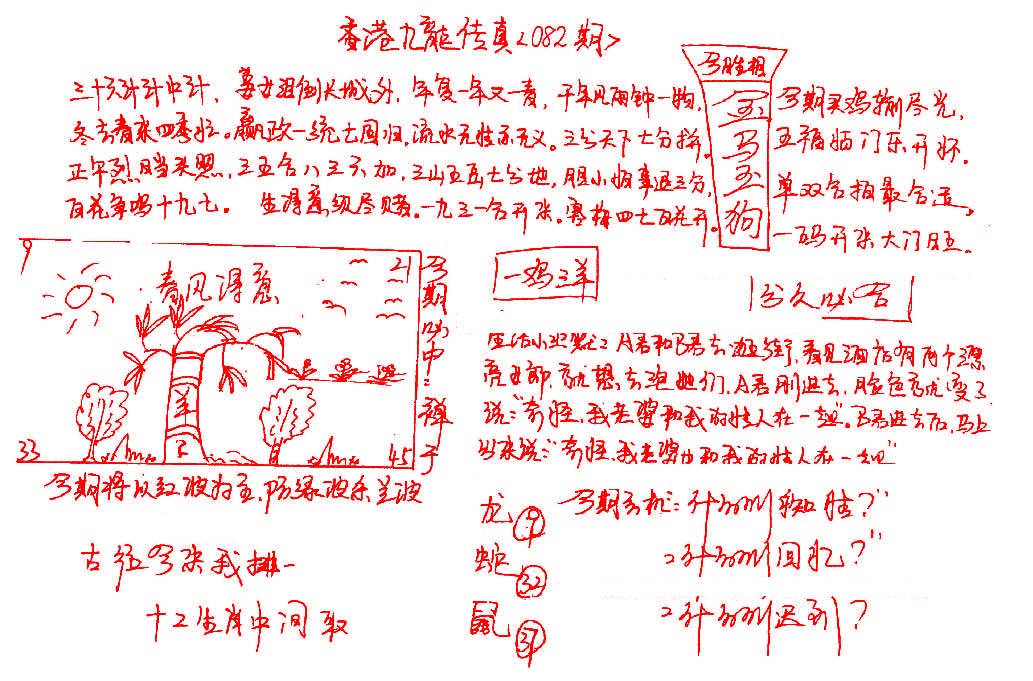 香港九龍传真<082期>
三十六计计中计，姜女泪倒长城外，年复一年又一春，千年见面钟一物，
冬去春来四季好。嬴政一统七国归，流水无性亦无义。三分天下七分拼。
正午烈日当头照，三五合八三不加，三山五岳七分地，胆小怕事退三分，
百花争鸣十九七。生得意须尽赌。一九三一合开张。寒梅四七百花开。
今期买鸡输尽光，
五福临门乐开怀。
单双合拍最合适，
一码开张大门旺。
马
狗
9
21
春风得意
羊
33
45
今期必中:
子
今期将以红波为主，防绿波杀兰波
一鸡三羊
分久必合
生活小 A君和B君去逛街，看见酒店有两个漂
亮女郎，就想去泡她们，A君刚进去，脸色就变了
说:"奇怪，我老婆和我的情人在一起"。B君进去后，马上
出来说:"奇怪，我老婆也和我的情人在一起"
龙 9
蛇 32
鼠 37
今期玄机: 什么叫 ?"
什么叫回忆?"
什么叫迟到?
古 今来我排一
十二生肖中间取